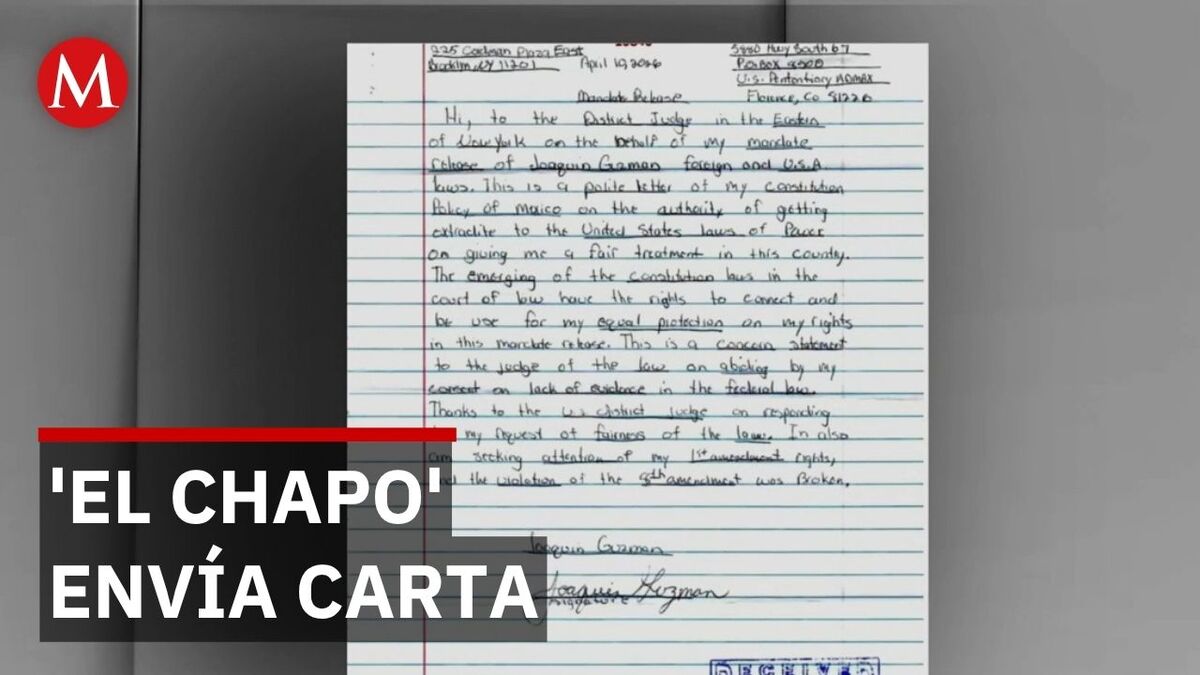 M
225 Cadman Plaza East
Brooklyn, NY 11201
April 10, 2026
5880 Hwy South 67
P.O. BOX 8500
U.S. Penitentiary ADMAX
Florence, Co 81226
Mandate Release
Hi, to the District Judge in the Eastern
of New York on the behalf of my mandate
release of Joaquin Guzman foreign and U.S.A
laws. This is a polite letter of my constitution
Policy of Mexico on the authority of getting
extradite to the United States laws of Power
on giving me a fair treatment in this county.
The emerging of the constitution laws in the
court of law have the rights to connect and
be use for my equal protection on my rights
in this mandate release. This is a concern statement
to the judge of the law on abiding by my
consent on lack of evidence in the federal law.
Thanks to the U.S District Judge on responding
my request of fairness of the law. In also
am seeking attention of my 1st amendment rights,
the violation of the 8th amendment was Broken.
Joaquin Guzman
Joaquin Guzman
Signature
RECEIVED
'EL CHAPO'
ENVÍA CARTA